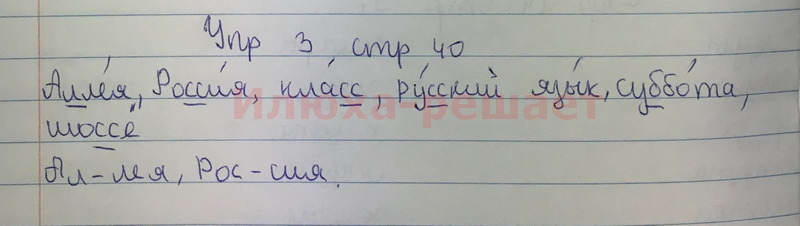 Упр 3 стр 40
Алле́я, Росси́я, кла́сс, ру́сский язы́к, суббо́та,
шоссе́
Ал-лея, Рос-сия.
Илюха-решает